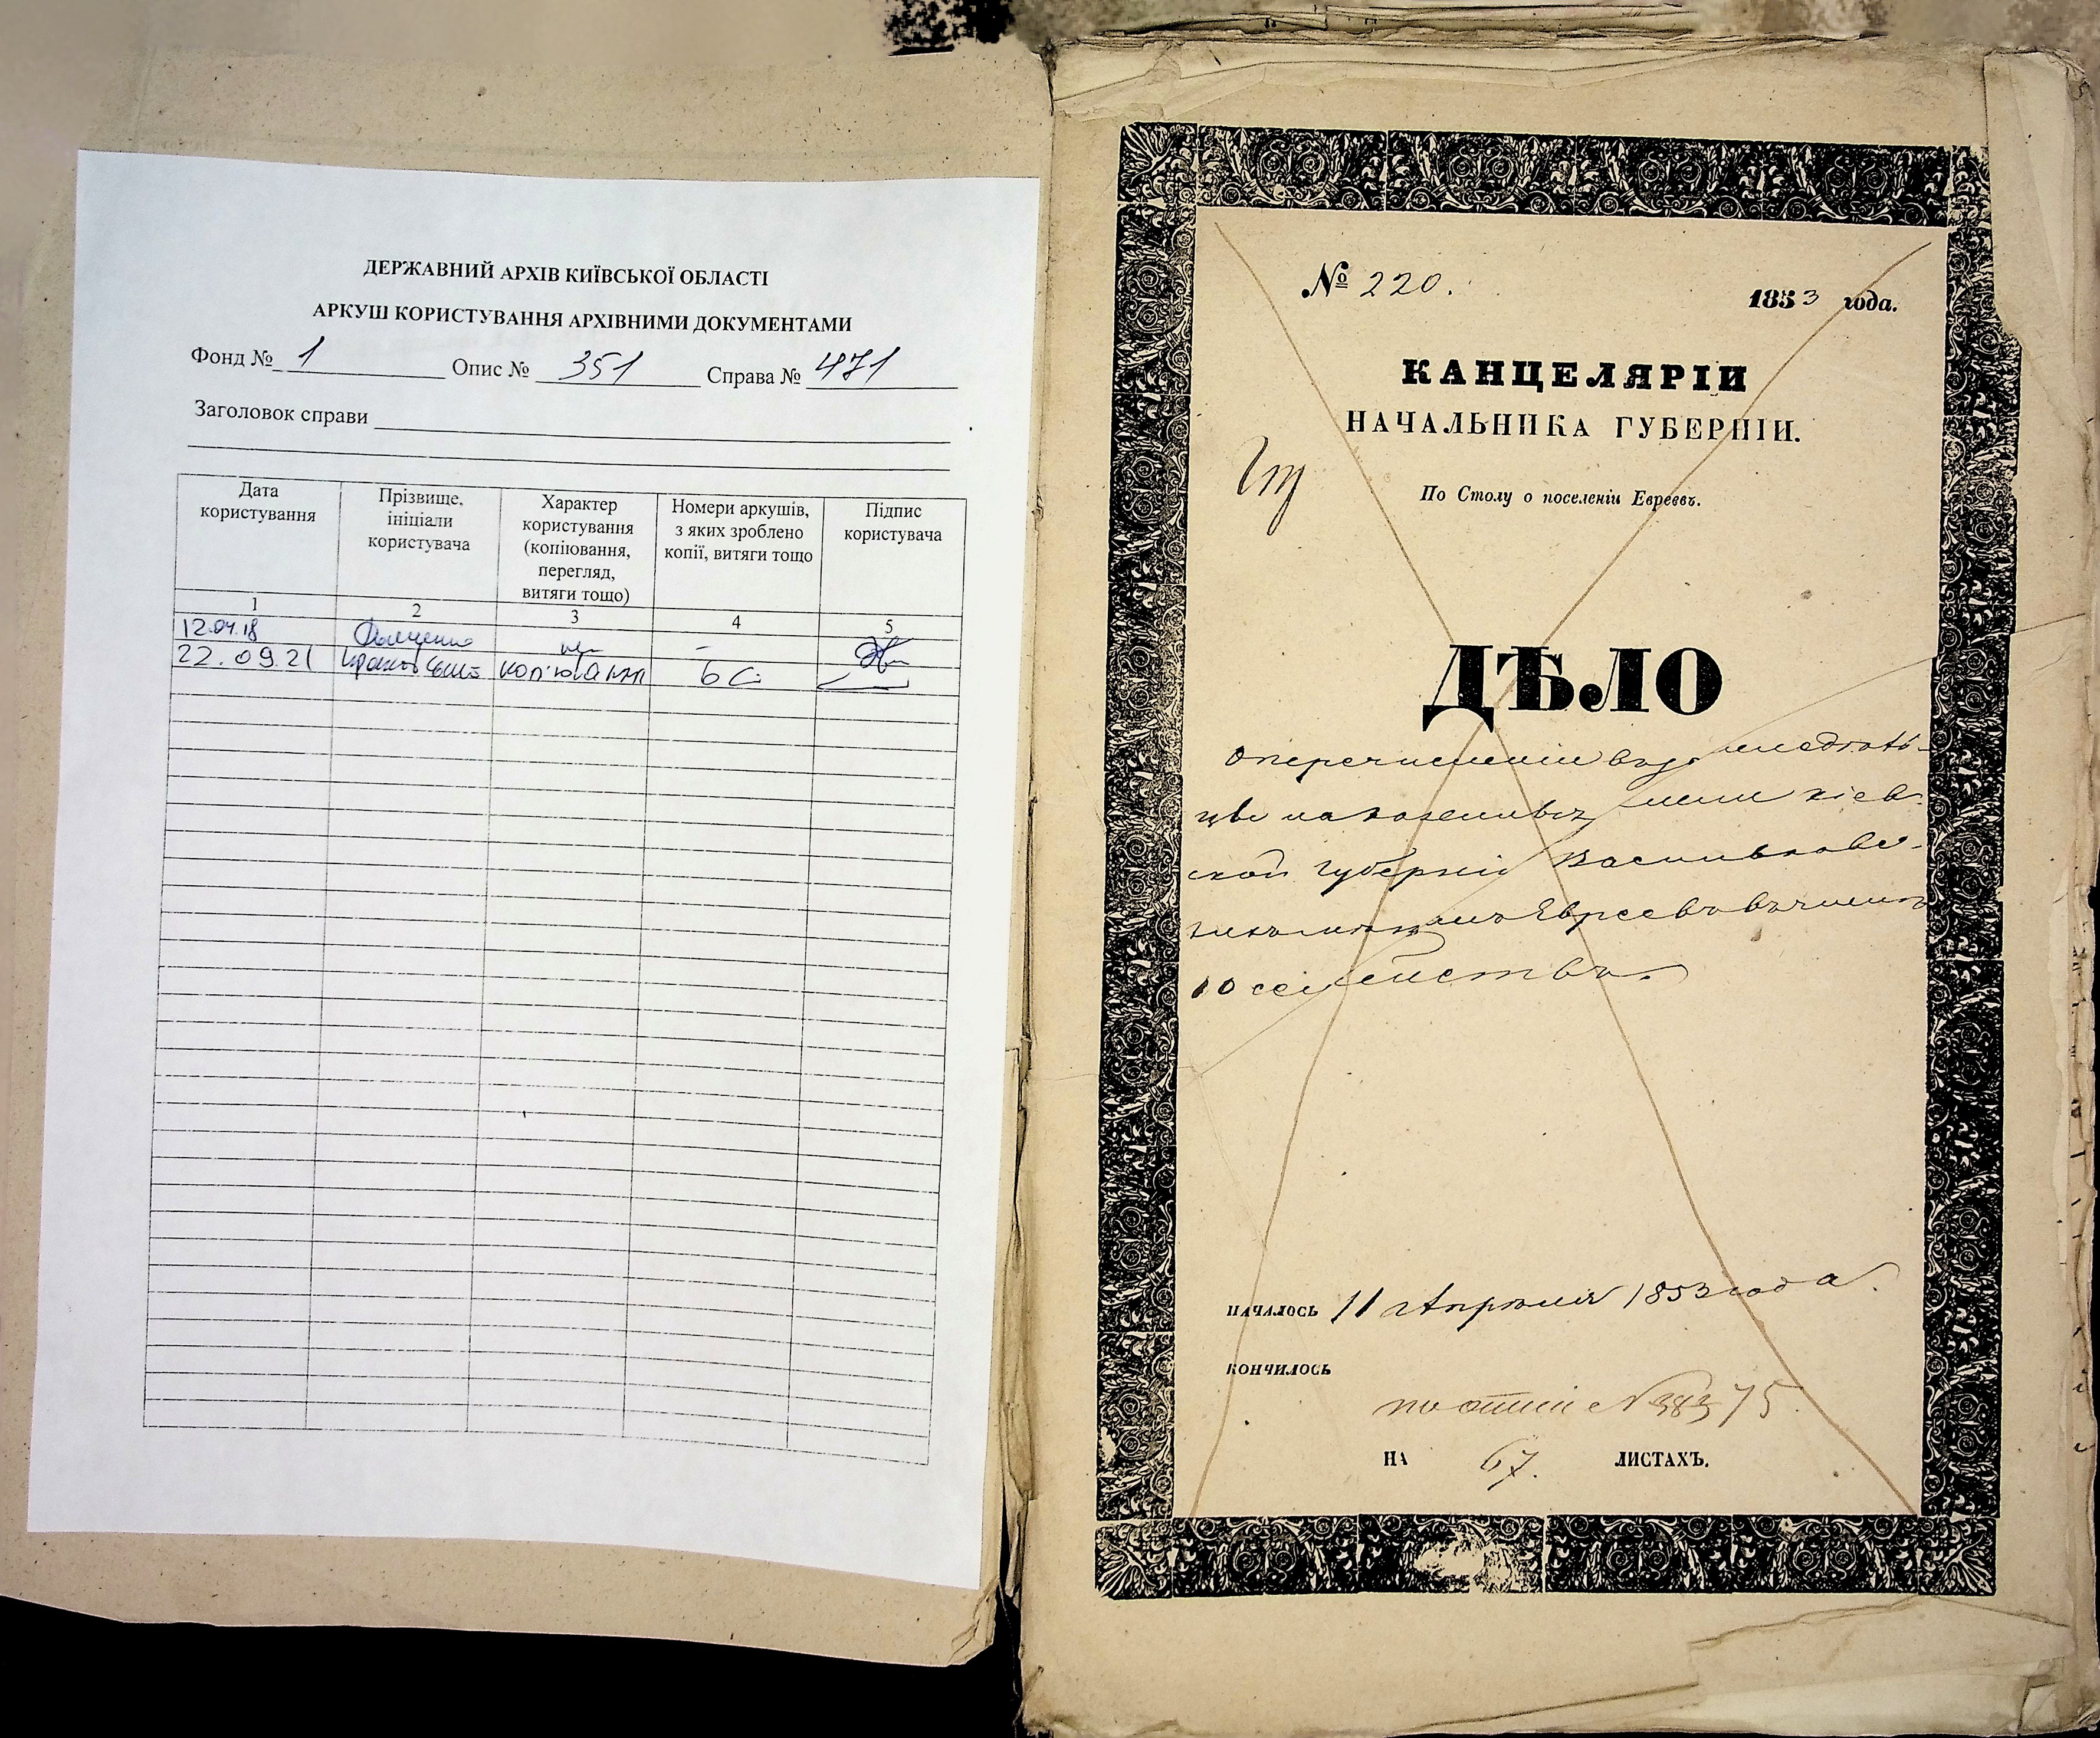 ДЕРЖАВНИЙ АРХІВ КИЇВСЬКОЇ ОБЛАСТІ
АРКУШ КОРИСТУВАННЯ АРХІВНИМИ ДОКУМЕНТАМИ
Фонд № 1 Опис № 351 Справа № 471
Заголовок справи
Дата користування
Прізвище, ініціали користувача
Характер користування (копіювання, перегляд, витяги тощо)
Номери аркушів, з яких зроблено копії, витяги тощо
Підпис користувача
1 2 3 4 5
12.04.18 -
22.09.21 копіювання
№ 220. 1853 года.
КАНЦЕЛЯРІИ
НАЧАЛЬНИКА ГУБЕРНІИ.
По Столу о поселеніи Евреевъ.
ДѢЛО
О перечисленіи въ земледѣль-
цы на казенныхъ земли Кіев-
ской губерніи Васильковс-
Евреевъ въ числѣ
10 семействъ.
НАЧАЛОСЬ 11 Апрѣля 1853 года.
КОНЧИЛОСЬ
по описи № 75.
НА 67. ЛИСТАХЪ.